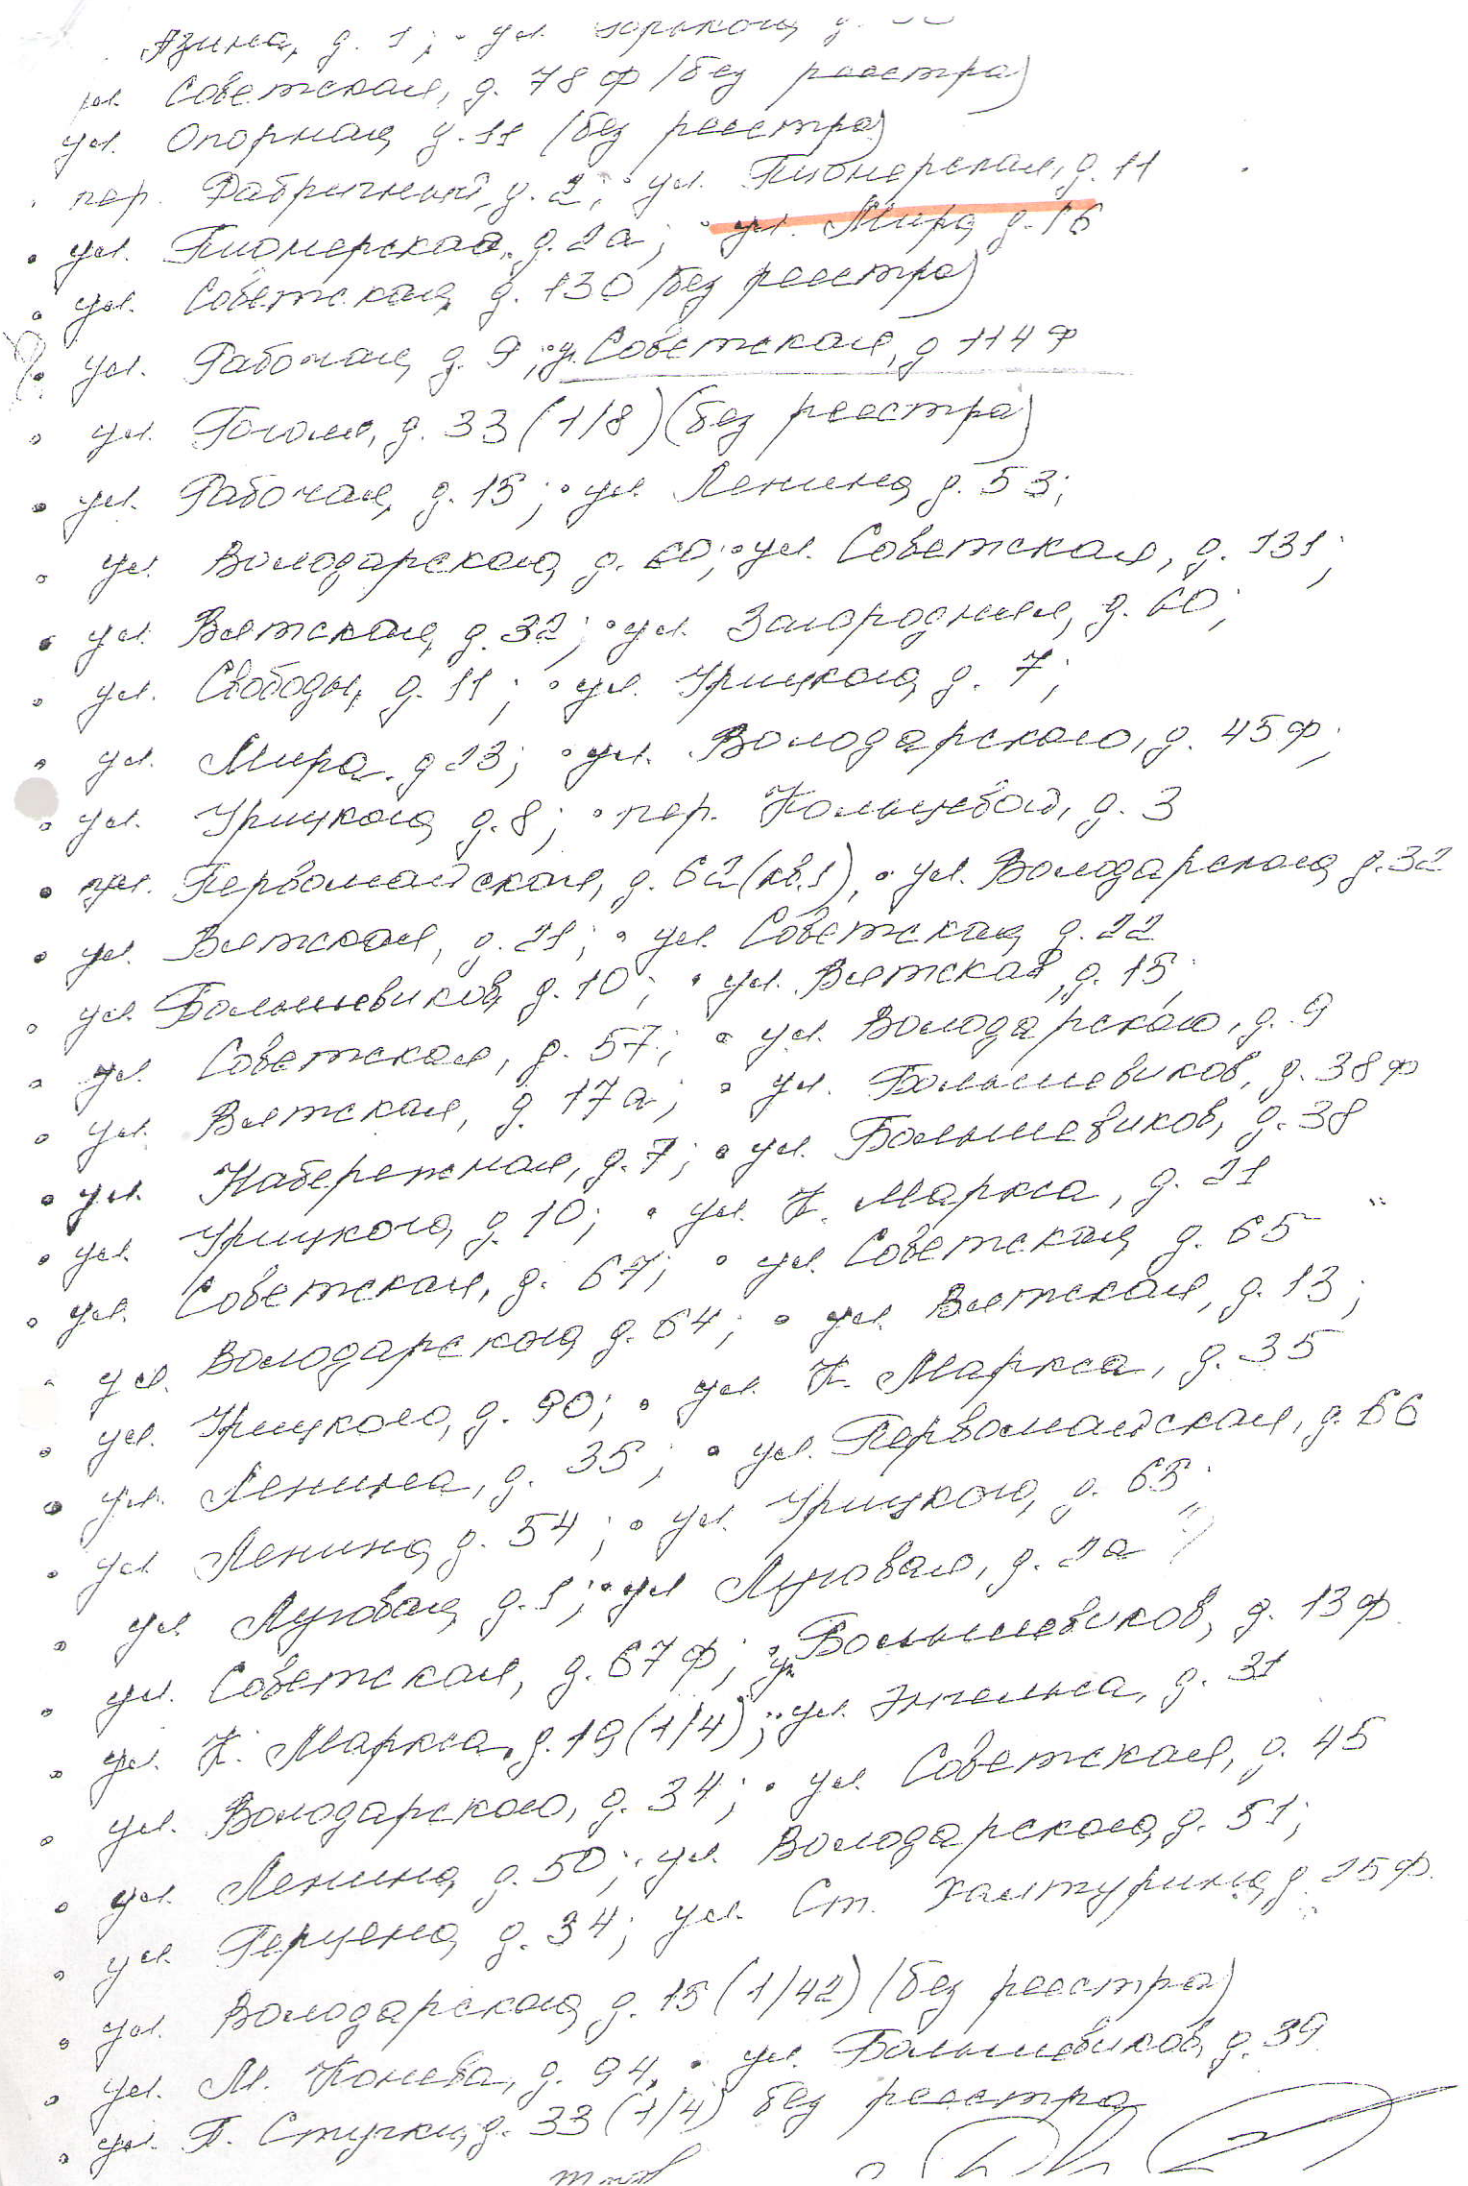 Азина, д. 1; • ул. Горького, д.
ул. Советская, д. 78 ф (без реестра)
ул. Опорная, д. 11 (без реестра)
• пер. Фабричный, д. 2; • ул. Пионерская, д. 11
• ул. Пионерская, д. 2а; • ул. Мира, д. 16
• ул. Советская, д. 130 (без реестра)
• ул. Рабочая, д. 9; ул. Советская, д 114 ф
• ул. Гоголя, д. 33 (1/8) (без реестра)
• ул. Рабочая, д. 15; • ул. Ленина, д. 53;
• ул. Володарского, д. 60; • ул. Советская, д. 131;
• ул. Вятская, д. 32; • ул. Загородная, д. 60;
• ул. Свободы, д. 11; • ул. Урицкого, д. 7;
• ул. Мира, д 23; • ул. Володарского, д. 45ф;
• ул. Урицкого, д. 8; • пер. Кольцевой, д. 3
• ул. Первомайская, д. 62 (кв. 1), • ул. Володарского, д. 32
• ул. Вятская, д. 21; • ул. Советская, д. 22
• ул. Большевиков, д. 10; • ул. Вятская, д. 15;
• ул. Советская, д. 57; • ул. Володарского, д. 9
• ул. Вятская, д. 17а; • ул. Большевиков, д. 38ф
• ул. Набережная, д. 7; • ул. Большевиков, д. 38
• ул. Урицкого, д. 10; • ул. К. Маркса, д. 21
• ул. Советская, д. 67; • ул. Советская, д. 65
• ул. Володарского, д. 64; • ул. Вятская, д. 13;
• ул. Урицкого, д. 90; • ул. К. Маркса, д. 35
• ул. Ленина, д. 35; • ул. Первомайская, д. 66
• ул. Ленина, д. 54; • ул. Урицкого, д. 65;
• ул. Луговая, д. 1; • ул. Луговая, д. 2а
• ул. Советская, д. 67 ф; • ул. Большевиков, д. 13 ф.
• ул. К. Маркса, д. 19 (1/4); • ул. Энгельса, д. 31
• ул. Володарского, д. 34; • ул. Советская, д. 45
• ул. Ленина, д. 50; • ул. Володарского, д. 51;
• ул. Герцена, д. 34; ул. Ст. Халтурина, д. 25ф.
• ул. Володарского, д. 15 (1/42) (без реестра)
• ул. М. Конева, д. 94, • ул. Большевиков, д. 39
• ул. П. Стучки, д. 33 (1/4) без реестра